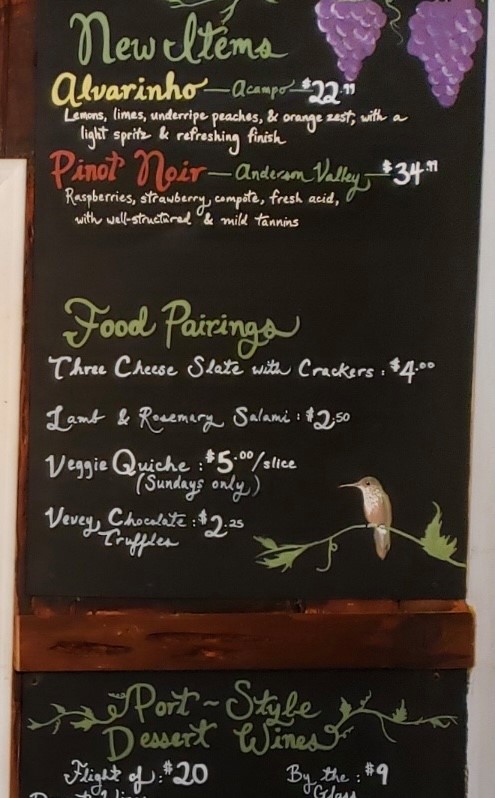 New Items
Alvarinho — Acampo — $22.99
Lemons, limes, underripe peaches, & orange zest; with a
light spritz & refreshing finish
Pinot Noir — Anderson Valley — $34.99
Raspberries, strawberry, compote, fresh acid,
with well-structured & mild tannins
Food Pairings
Three Cheese Slate with Crackers : $4.00
Lamb & Rosemary Salami : $2.50
Veggie Quiche : $5.00/slice
(Sundays only)
Vevey Chocolate : $2.25
Truffles
Port ~ Style
Dessert Wines
Flight of : $20 By the : $9
Glass